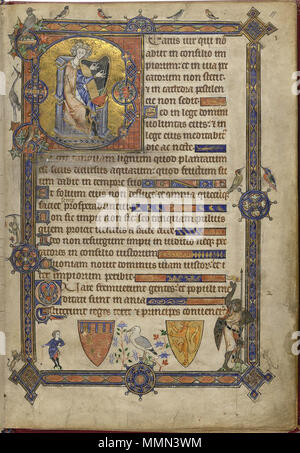 eatus uir qui no
abiit in consilio im
piorum: et in uia pec
catorum non stetit:
et in cathedra pestilen
cie non sedit
Sed in lege domini
uoluntas eius: et in
lege eius meditabit
die ac nocte
tanquam lignum quod plantatum
est secus decursus aquarum: quod fructum su
um dabit in tempore suo
Et folium eius non defluet: et omnia
faciet prosperabuntur
Non sic impii non sic: tanquam puluis
quem proicit uentus a facie terre
Ideo non resurgunt impii in iudicio neqz pec
catorum in consilio iustorum
Quoniam nouit dominus uiam iustorum: et
iter impiorum peribit
Quare fremuerunt gentes: et populi me
ditati sunt inania
Astiterunt reges terre et principes
alamy
Image ID: MMN3WM
www.alamy.com